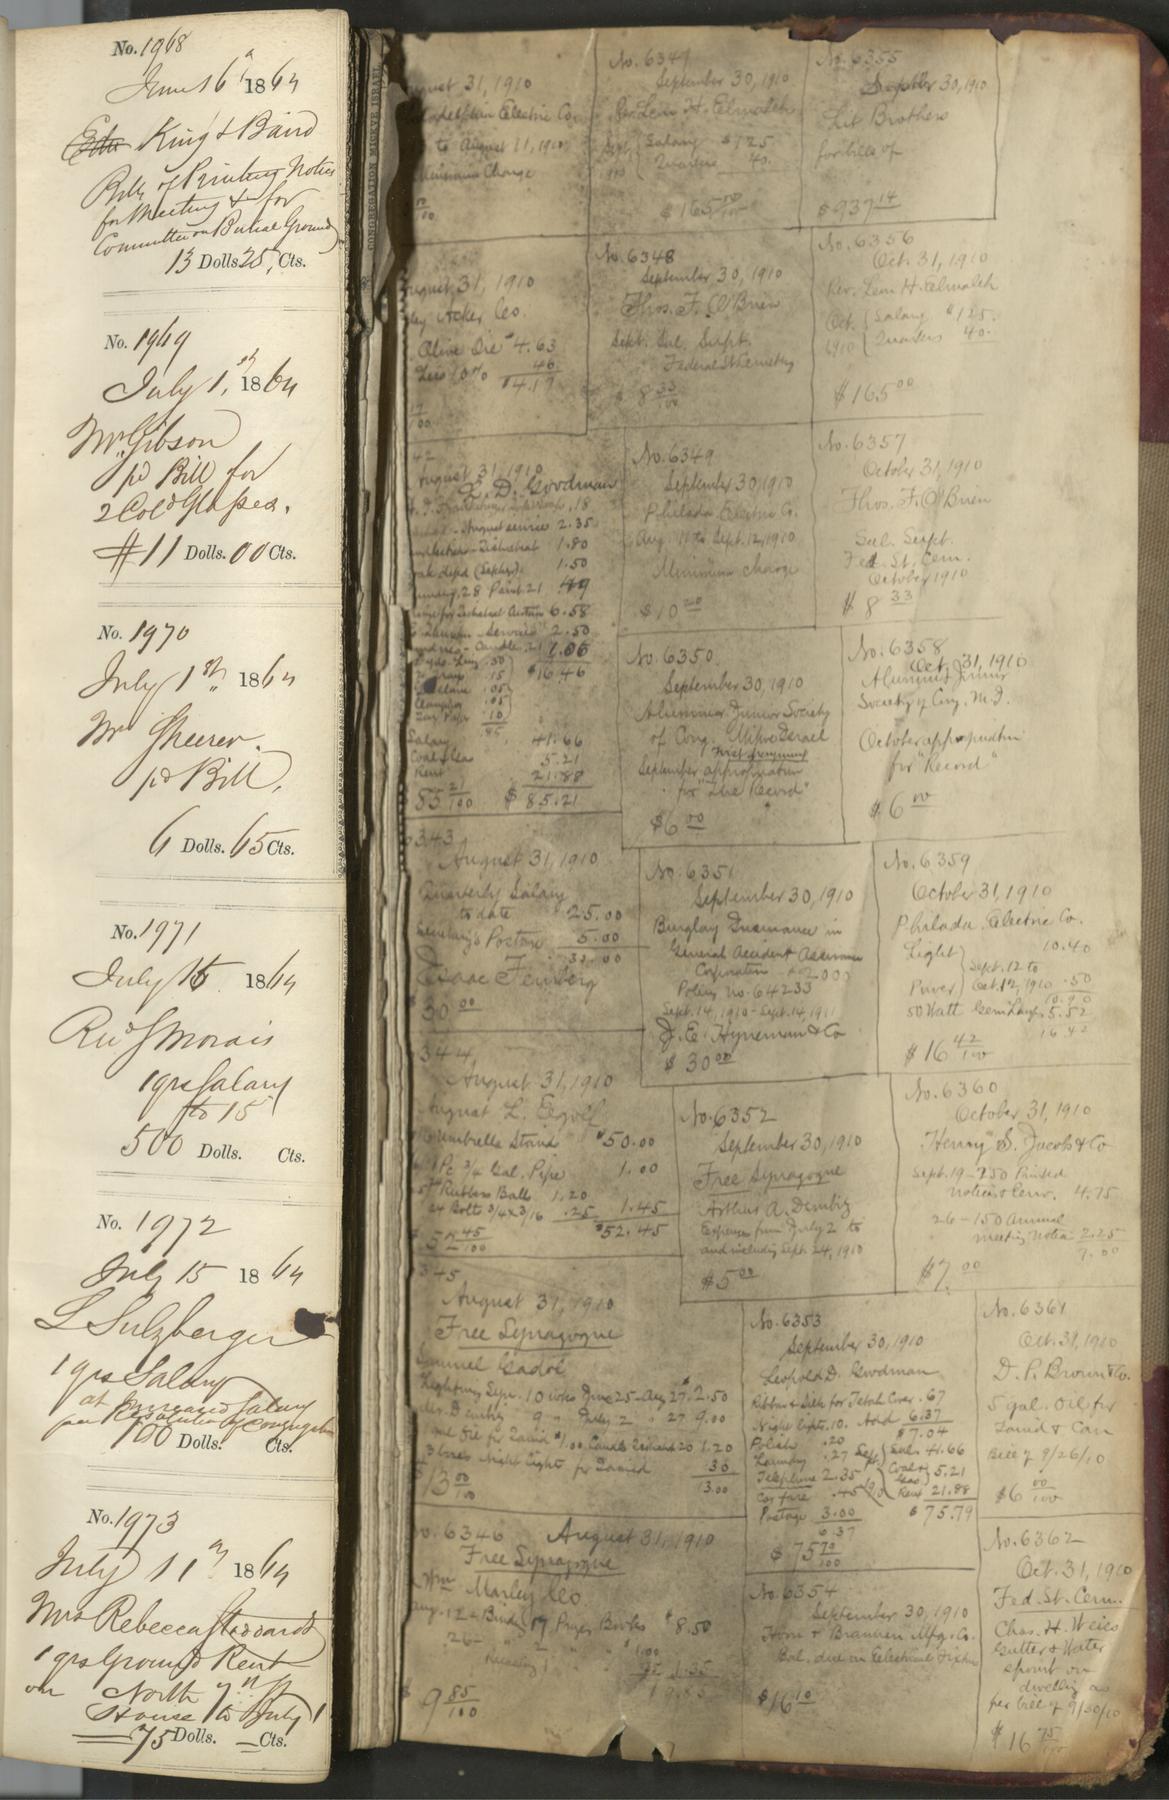 No. 1968
June 16 1864
King & Baird
Bill of Printing Notices
for Meeting & for
Committee on Burial Ground
13 Dolls. 25 Cts.
No. 1969
July 1, 1864
Mr Gibson
pd Bill for
2
$11 Dolls. 00 Cts.
No. 1970
July 1st 1864
Mr Sheerer.
pd Bill,
6 Dolls. 65 Cts.
No. 1971
July 15 1864
Revd S Morais
1 qrs Salary
to 15
500 Dolls. Cts.
No. 1972
July 15 1864
L Sulzberger
1 qrs Salary
at Increased Salary
per Resolution of Congregation
100 Dolls. Cts.
No. 1973
July 11th 1864
Mrs Rebecca Stoddardt
1 qrs Ground Rent
on North 7th St
House to July 1
75 Dolls. Cts.
CONGREGATION MICKVE ISRAEL
August 31, 1910
Philadelphia Electric Co.
to August 11, 1910
Minimum Charge
August 31, 1910
Acker Co.
Olive Oil $4.63
Less 10% 46
$4.17
August 31, 1910
L. D. Goodman
August service 2.35
1.80
1.50
6.58
2.50
7.06
$16.46
Salary 41.66
Coal & Gas 5.21
Rent 21.88
85 21/100 $85.21
6343
August 31, 1910
Quarterly Salary
to date 25.00
Secretary's Postage 5.00
30.00
Isaac Feinberg
30 00
344
August 31, 1910
August L.
Umbrella Stand $50.00
1 Pc 3/4 Gal. Pipe 1.00
Rubber Balls 1.20
24 Bolts 3/4 x 3/16 .25 1.45
$52.45
52 45/100
345
August 31, 1910
Free Synagogue
Samuel Gadol
Lighting Syn. 10 wks June 25-Aug 27 2.50
9 " July 2 " 27 9.00
1.20
3 boxes Night Lights for Tamid 30
13.00
13 00/100
No. 6346 August 31, 1910
Free Synagogue
Wm Marley & Co
Aug. 12 - Binding 17 Prayer Books $8.50
26 - " 2 " $1.00
1.35
9 85/100
No. 6347
September 30, 1910
Rev. Leon H. Elmaleh
Sept. Salary $125
1910 Quarters 40.
$165 00/100
No. 6348
September 30, 1910
Thos. F. O'Brien
Sept. Sal. Supt.
Federal St Cemetery
$8 33/100
No. 6349
September 30, 1910
Philada Electric Co.
Aug. 11 to Sept. 12, 1910
Minimum charge
$10 20
No. 6350
September 30, 1910
Alumni Junior Society
of Cong. Mikve Israel
September appropriation
for "The Record"
$6 00
No. 6351
September 30, 1910
Burglary Insurance in
General Accident Assurance
Corporation - $2000
Policy No. 64233
Sept. 14, 1910 - Sept. 14, 1911
J. E. Hyneman & Co
$30 00
No. 6352
September 30, 1910
Free Synagogue
Arthur A. Dembitz
Expenses from July 2 to
and including Sept. 24, 1910
$5 00
No. 6353
September 30, 1910
Leopold D. Goodman
Ribbon & Silk for Tebah Cover .67
Night lights .10. Add 6.37
$7.04
Polish .20
Laundry .27 Sept. Sal. 41.66
Telephone 2.35 Coal & Gas 5.21
Car fare .45 Rent 21.88
Postage 3.00 $75.79
6.37
$75 79/100
No. 6354
September 30, 1910
Horn & Brannen Mfg. Co.
Bal. due on Electrical Fixtures
$16 10
No. 6355
September 30, 1910
Lit Brothers
for bills of
$937 14
No. 6356
Oct. 31, 1910
Rev. Leon H. Elmaleh
Oct. Salary $125.
1910 Quarters 40.
$165 00
No. 6357
October 31, 1910
Thos. F. O'Brien
Sal. Supt.
Fed. St. Cem.
October 1910
$8 33
No. 6358
Oct. 31, 1910
Alumni Junior
Society of Cong. M. I.
October appropriation
for "Record"
$6 00
No. 6359
October 31, 1910
Philada. Electric Co.
Light 10.40
Sept. 12 to
Power Oct. 12, 1910 .50
10.90
50 Watt Gem Lamps 5.52
16.42
$16 42/100
No. 6360
October 31, 1910
Henry S. Jacobs & Co
Sept. 19 - 750 Printed
notices & env. 4.75
26 - 150 Annual
meeting Notices 2.25
7.00
$7. 00
No. 6361
Oct. 31, 1910
D. P. Brown & Co.
5 gal. Oil for
Tamid & Can
Bill of 9/26/10
$6 00/100
No. 6362
Oct. 31, 1910
Fed. St. Cem.
Chas. H. Weies
Gutter & Water
spout on
dwelling as
per bill of 9/30/10
$16 75/100